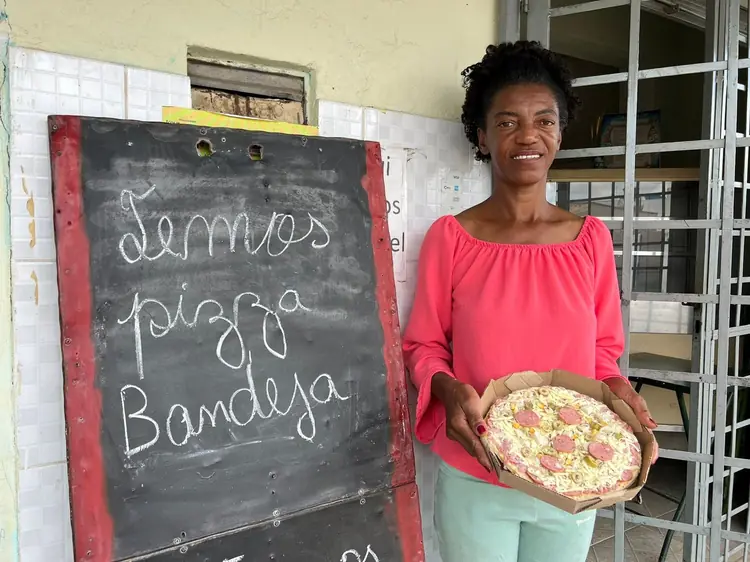 Temos
pizza
Bandeja